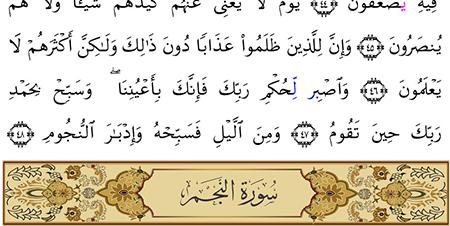 فِيهِ يُصْعَقُونَ ﴿٤٥﴾ يَوْمَ لَا يُغْنِى عَنْهُمْ كَيْدُهُمْ شَيْـًٔا وَلَا هُمْ
يُنصَرُونَ ﴿٤٦﴾ وَإِنَّ لِلَّذِينَ ظَلَمُوا۟ عَذَابًا دُونَ ذَٰلِكَ وَلَـٰكِنَّ أَكْثَرَهُمْ لَا
يَعْلَمُونَ ﴿٤٦﴾ وَاصْبِر لِّحُكْمِ رَبِّكَ فَإِنَّكَ بِأَعْيُنِنَا ۖ وَسَبِّحْ بِحَمْدِ
رَبِّكَ حِينَ تَقُومُ ﴿٤٧﴾ وَمِنَ الَّيْلِ فَسَبِّحْهُ وَإِدْبَـٰرَ النُّجُومِ ﴿٤٨﴾
سُورَةُ النَّجْمِ